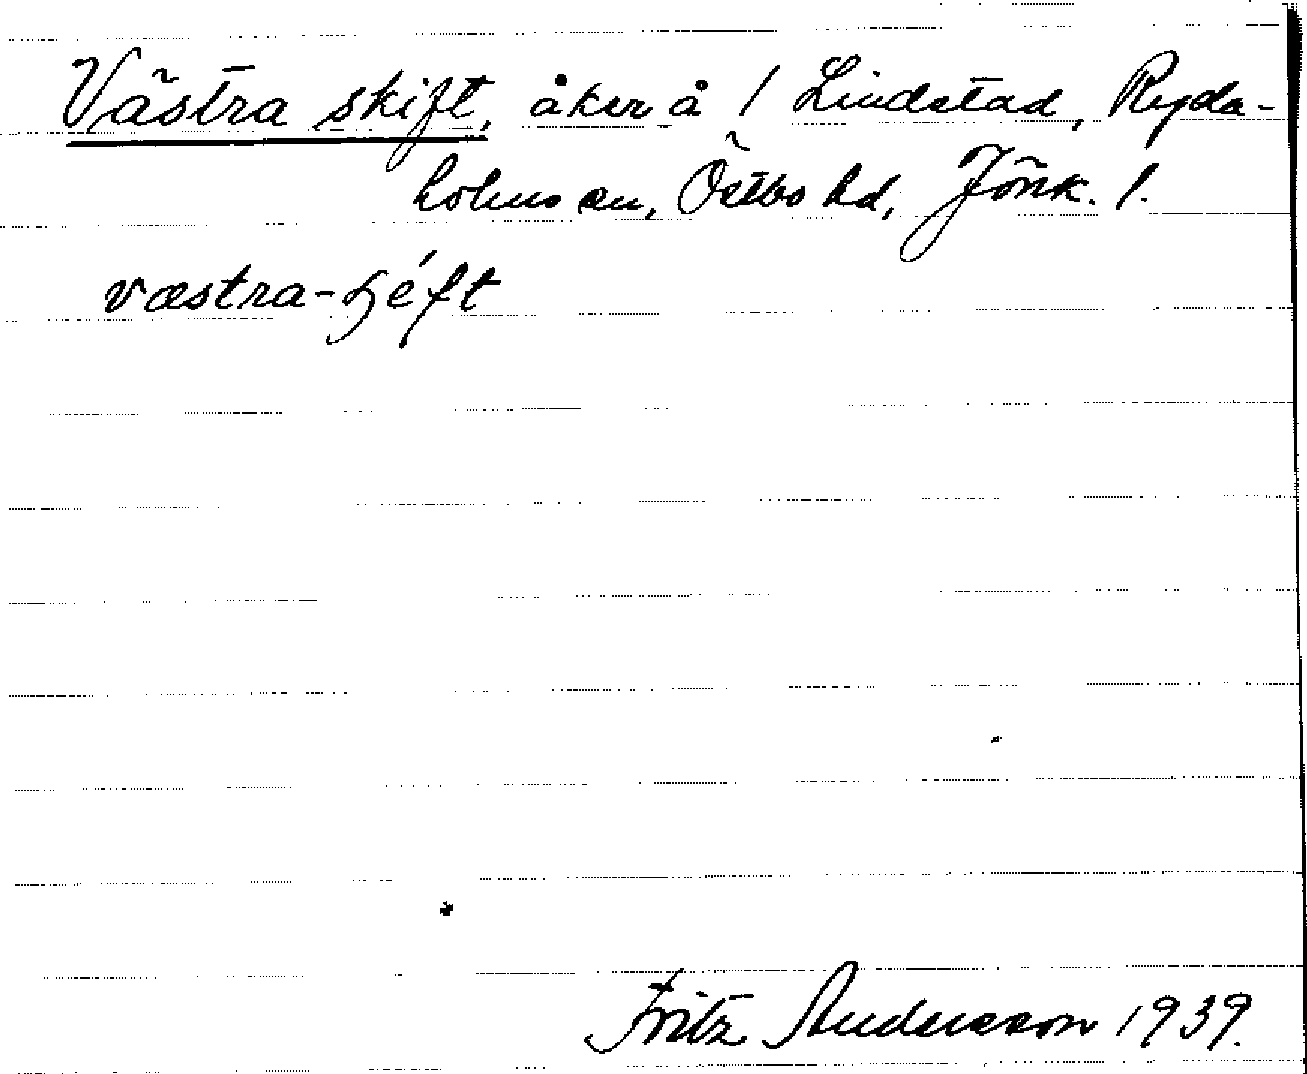 Västra skift, åker å 1 Lindstad, Ryda-
holms sn, Östbo hd, Jönk. l.
væstra-ʂéft
Fritz Andersson 1939.